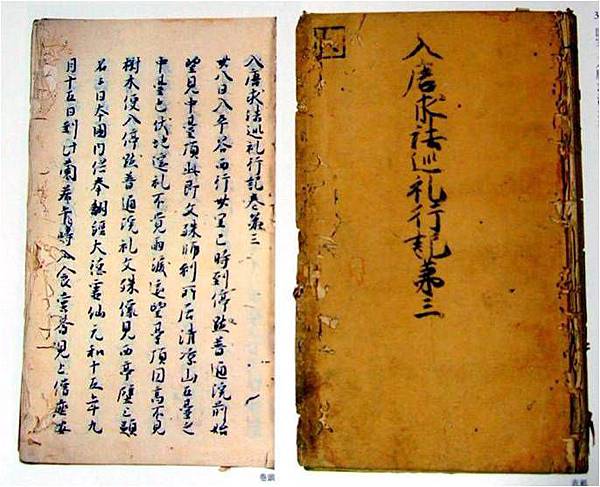 入唐求法巡礼行記第三
入唐求法巡礼行記巻第三
廿八日入平谷西行卅里巳時到停點普通院前始
望見中臺頂此即文殊師利所居清凉山五臺之
中臺也伏地遥礼不覚雨淚遥望臺頂因高不見
樹木便入停點普通院礼文殊像見西亭壁上題
名云日本國内供奉翻経大徳霊仙元和十五年九
月十五日到此蘭若 入食堂斎見上僧座安
巻頭